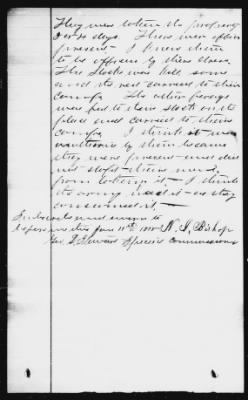 They were taken the property
or 10 days. There were officers
present – I knew them
to be officers by their dress.
The Stock was kill some
and the rest carried to their
Camps. The other forage
were fed to their stock on the
place and carried to their
camps. I think it was
authorized by them because
they were present – and did
not stop – their men
from taking it – I think
the army used it – as they
consumed it –
Subscribed and sworn to
before me this Jan 11th N. J. Bishop
Geo. Special Commissioner